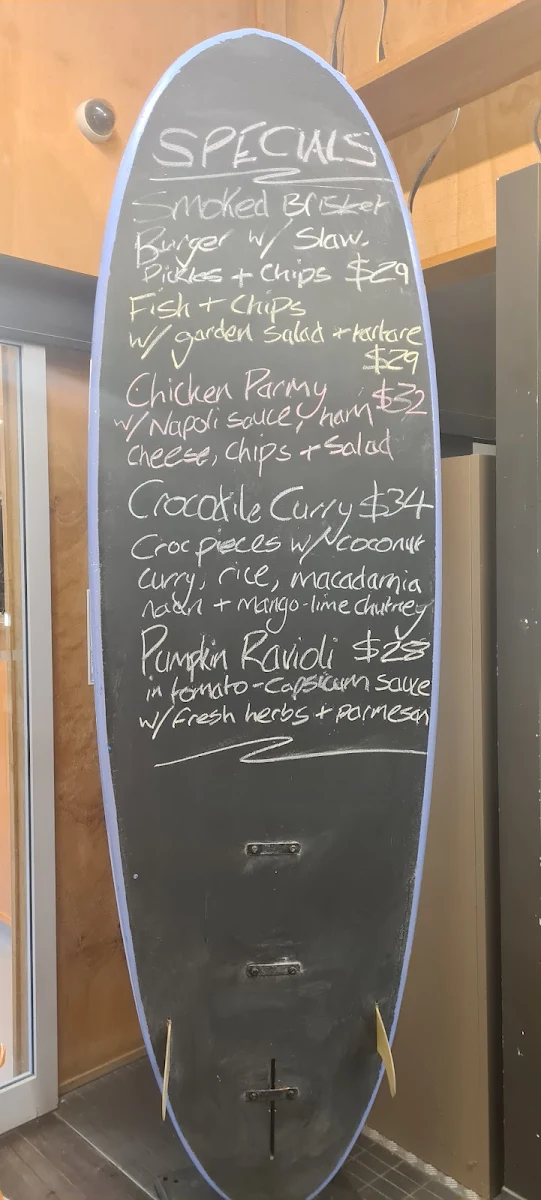 SPECIALS
Smoked Brisket
Burger w/ Slaw.
Pickles + Chips $29
Fish + Chips
w/ garden salad + tartare
$29
Chicken Parmy $32
w/ Napoli sauce, ham
cheese, chips + salad
Crocodile Curry $34
Croc pieces w/ coconut
curry, rice, macadamia
naan + mango-lime chutney
Pumpkin Ravioli $28
in tomato-capsicum sauce
w/ fresh herbs + parmesan